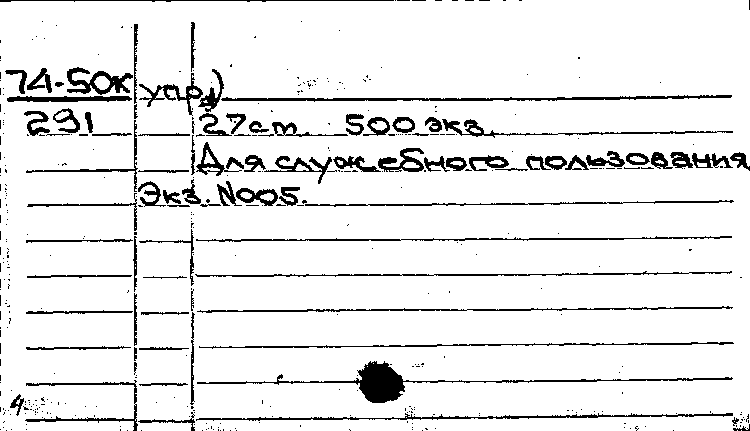 74-50к упр.)
291 27cm. 500 экз.
Для служебного пользования
Экз. №005.
4